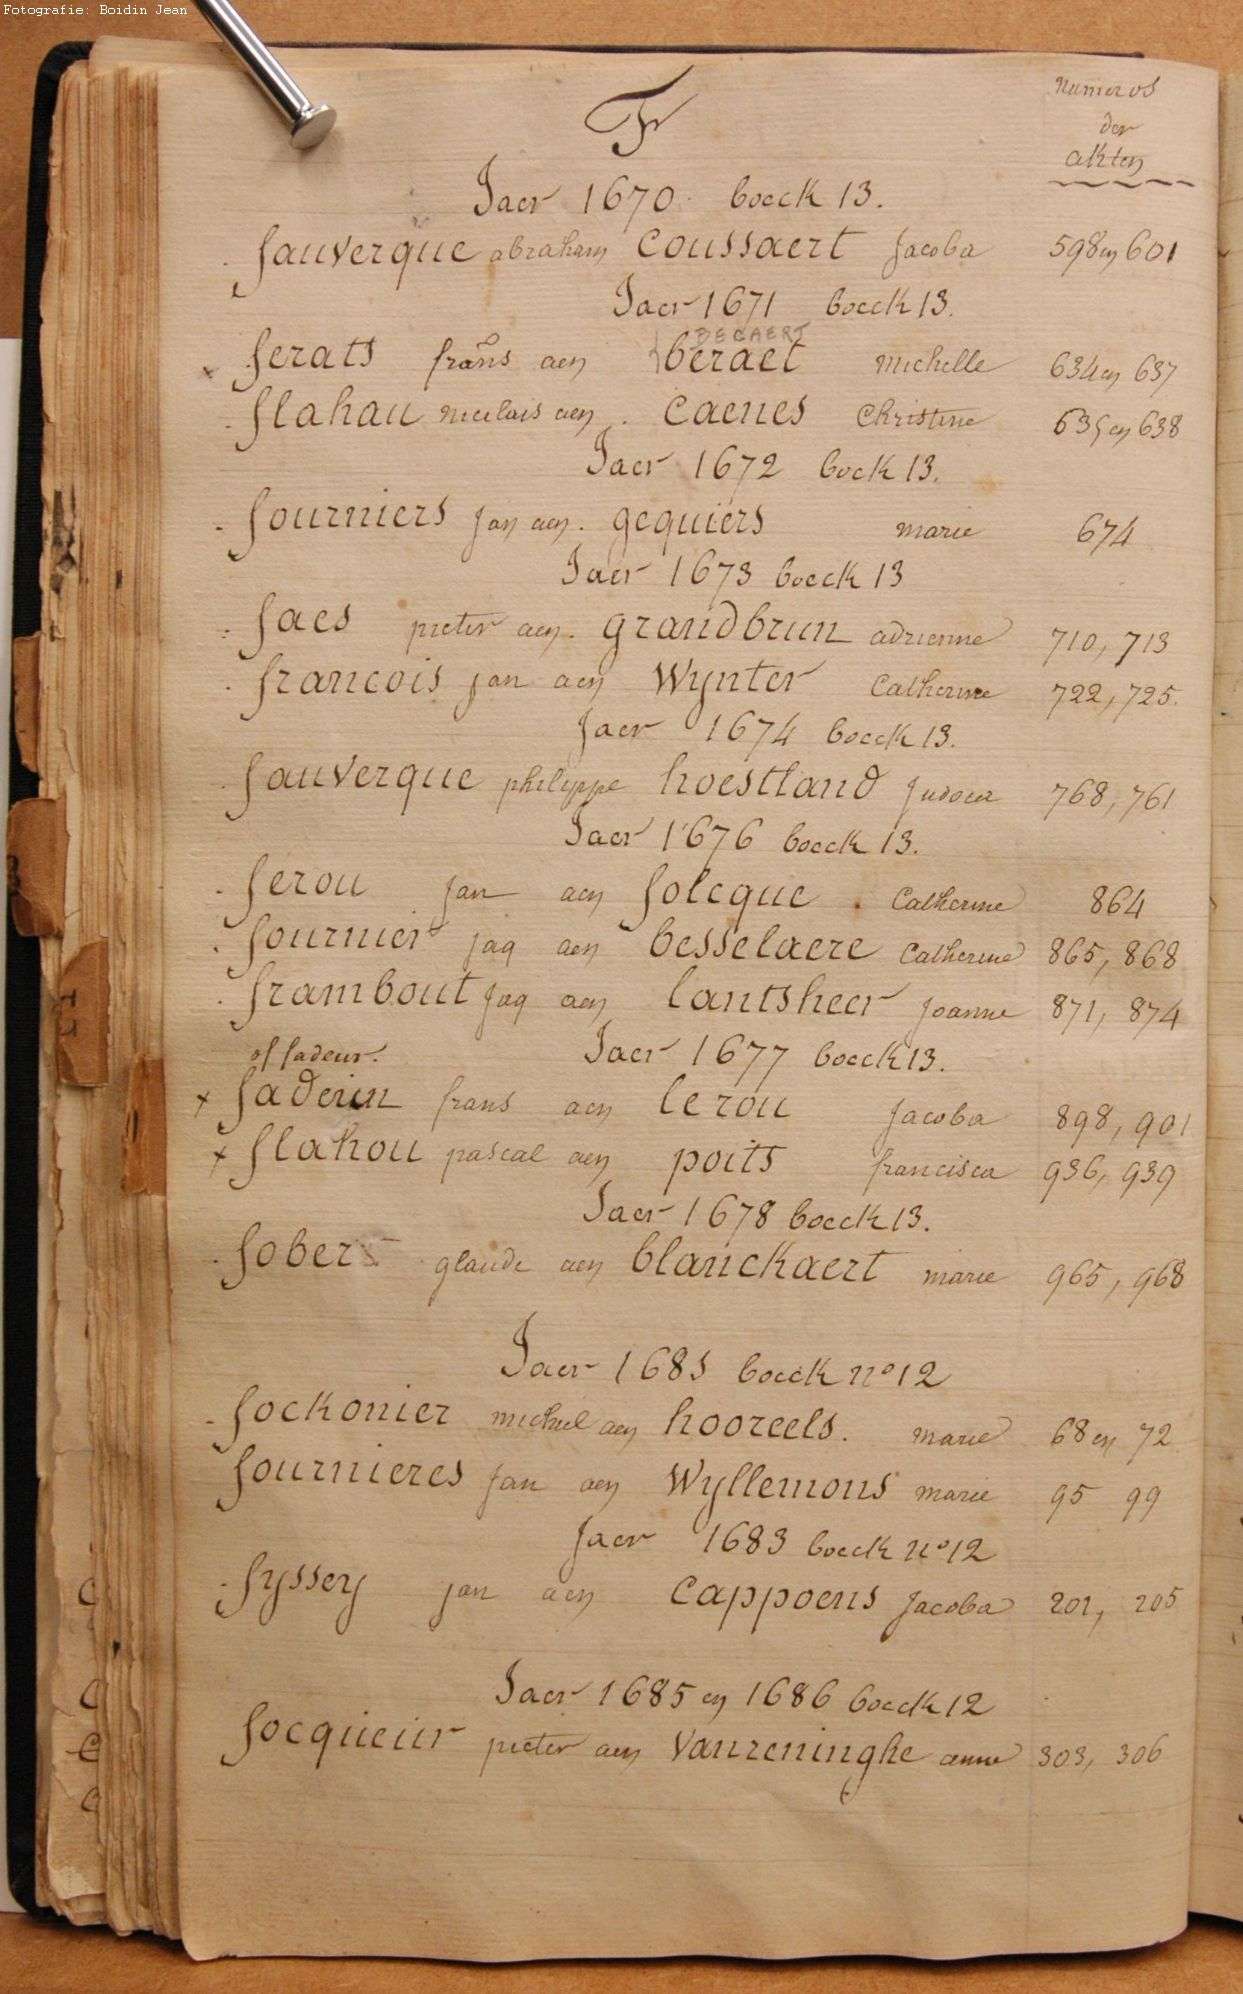 Fotografie: Boidin Jean
F
Numeros
der
akten
Jaer 1670 boeck 13.
fauverque abraham coussaert Jacoba 598 en 601
Jaer 1671 boeck 13.
BEGAERT
ferats frans aen beraet michelle 634 en 637
flahau nicolais aen caenes Christine 635 en 638
Jaer 1672 boek 13.
fourniers Jan aen gequiers marie 674
Jaer 1673 boeck 13
faes pieter aen grandbrun adrienne 710, 713
francois jan aen Wynter Catherine 722, 725.
Jaer 1674 boeck 13.
fauverque philippe hoestland Judoca 768, 761
Jaer 1676 boeck 13.
ferou Jan aen folcque Catherine 864
fournier jaq aen besselaere Catherine 865, 868
frambout Jaq aen lantsheer Joanne 871, 874
of fadeur.
Jaer 1677 boeck 13.
faderin frans aen lerou Jacoba 898, 901
flahou pascal aen poits francisca 936, 939
Jaer 1678 boeck 13.
fobert glaude aen blanckaert marie 965, 968
Jaer 1681 boeck no 12
fockonier michiel aen hooreels. marie 68 en 72
fournieres Jan aen Wyllemons marie 95 99
Jaer 1683 boeck no 12
fyssey jan aen cappoens Jacoba 201, 205
Jaer 1685 en 1686 boeck 12
focqueur pieter aen Vanreninghe anne 303, 306